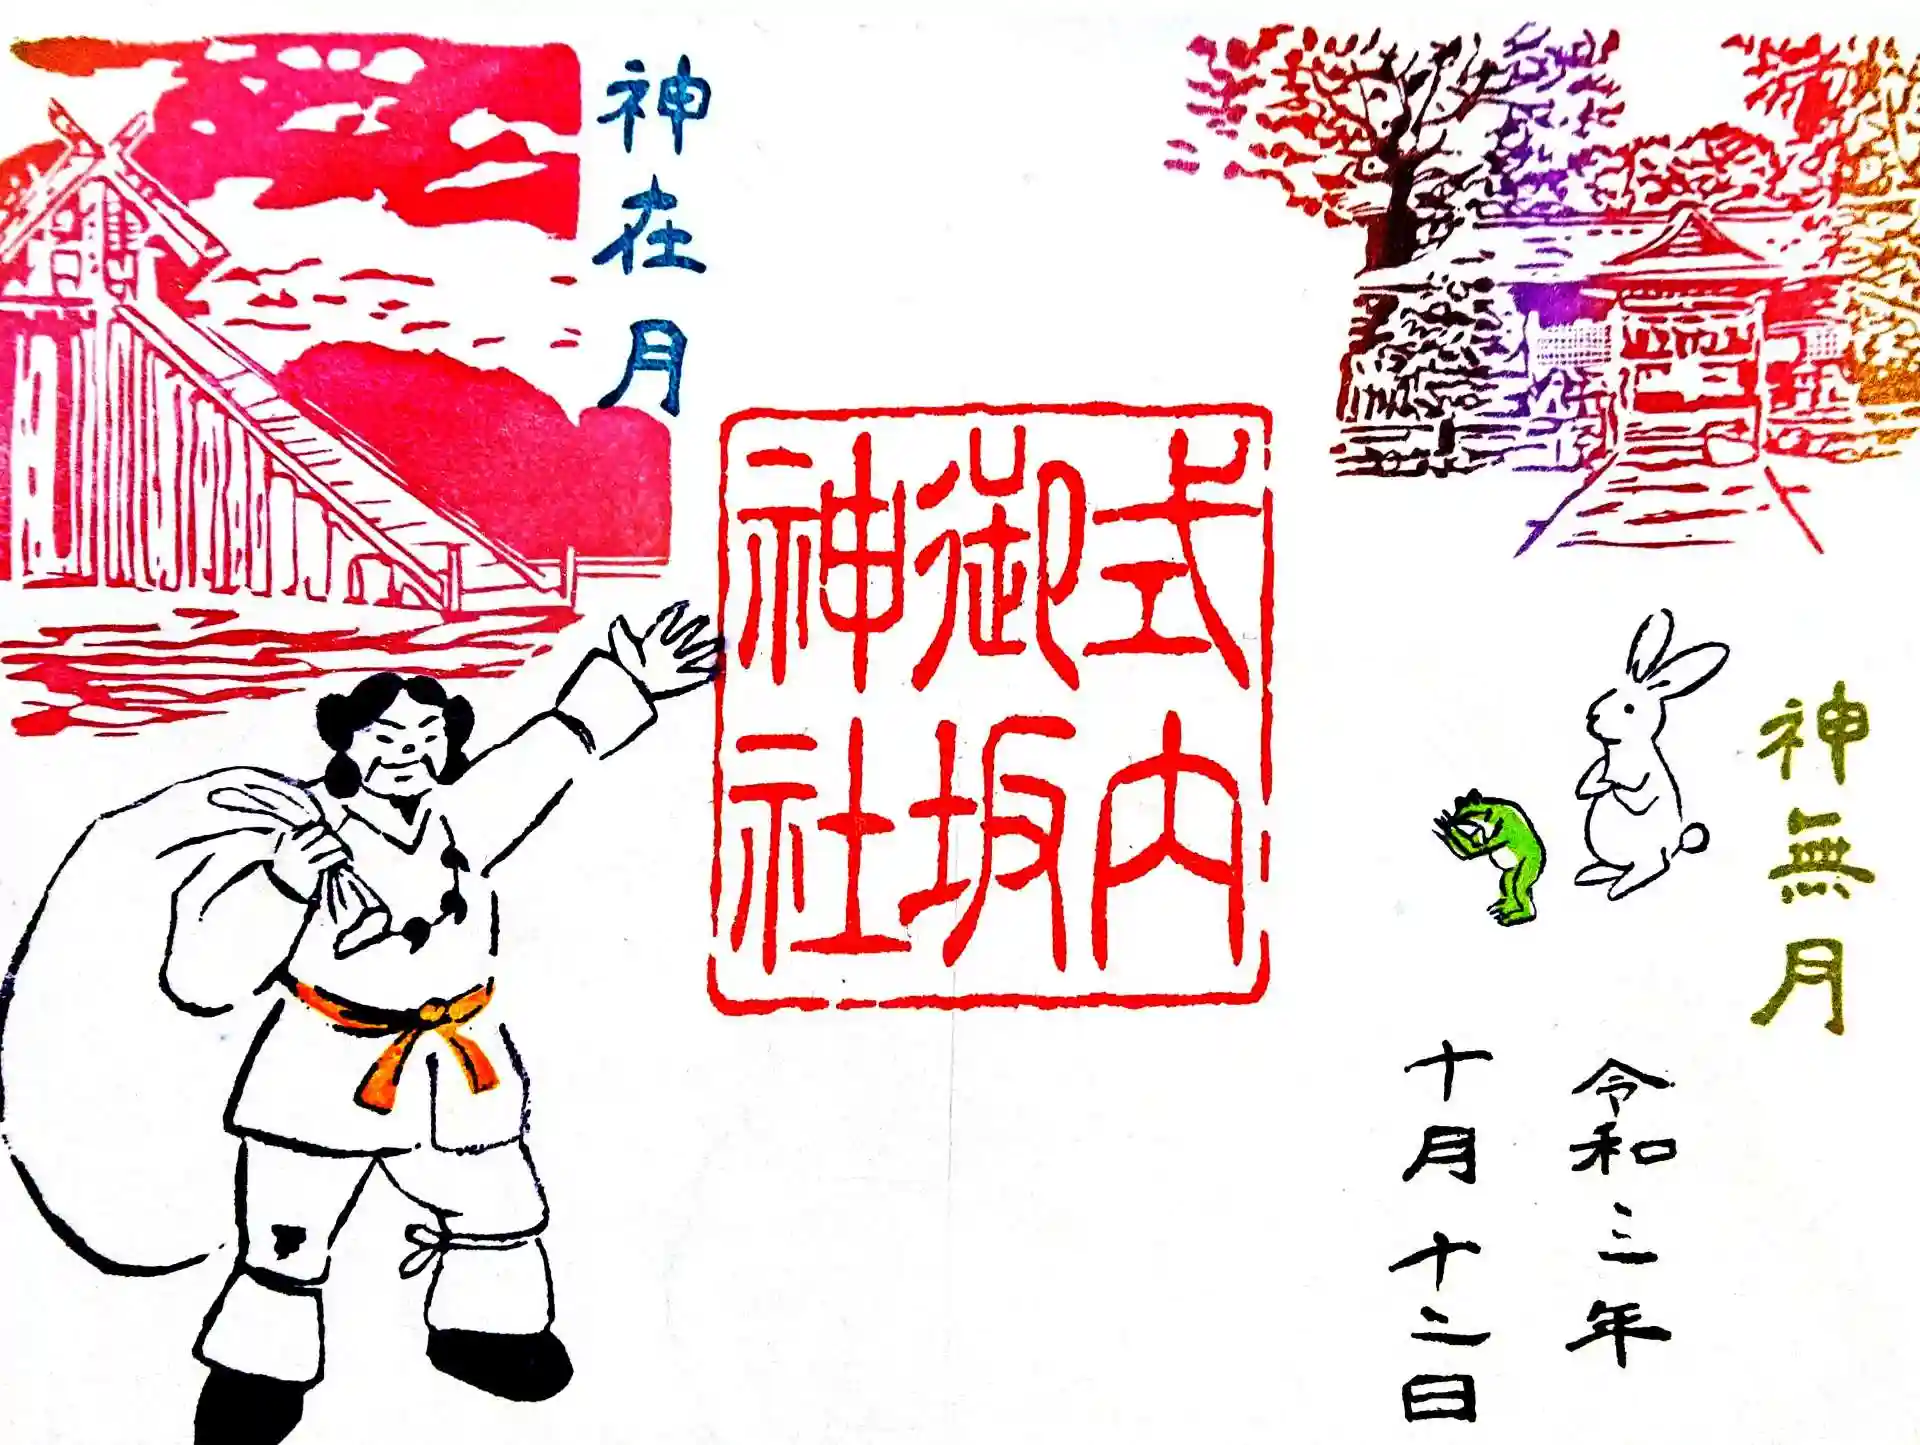 神無月
令和三年
十月十二日
式内
御坂
神社
神在月